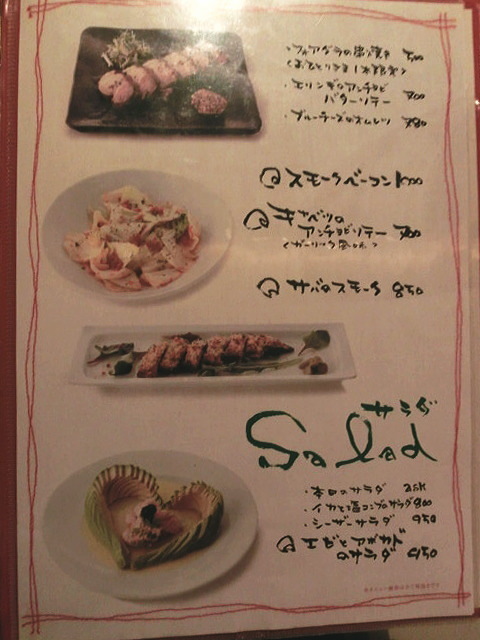 ・フォアグラの串焼き 500
(おひとりさま1本限定)
・エリンギのアンチョビ
バターソテー 700
・ブルーチーズのオムレツ 780
スモークベーコン
キャベツの
アンチョビソテー
(ガーリック風味)
サバのスモーク 850
サラダ
Salad
・本日のサラダ ask
・イカと塩コンブのサラダ 800
・シーザーサラダ 950
エビとアボカド
のサラダ 950